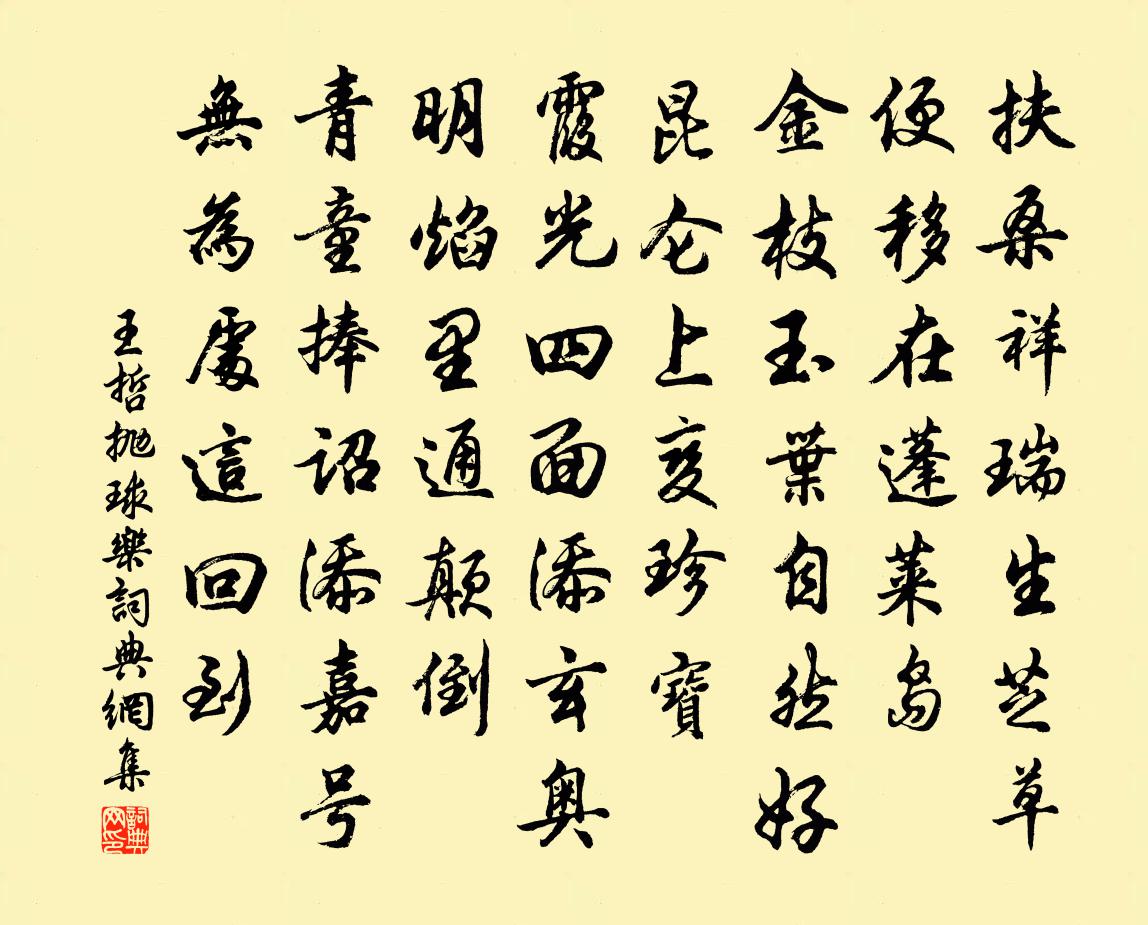 扶桑祥瑞生芝草
便移在蓬萊島
金枝玉葉自然好
昆仑上变珍寶
霞光四面添玄奥
明焰里通颠倒
青童捧詔添嘉号
無為處這回到
王哲抛球樂詞典網集
詞典
网印